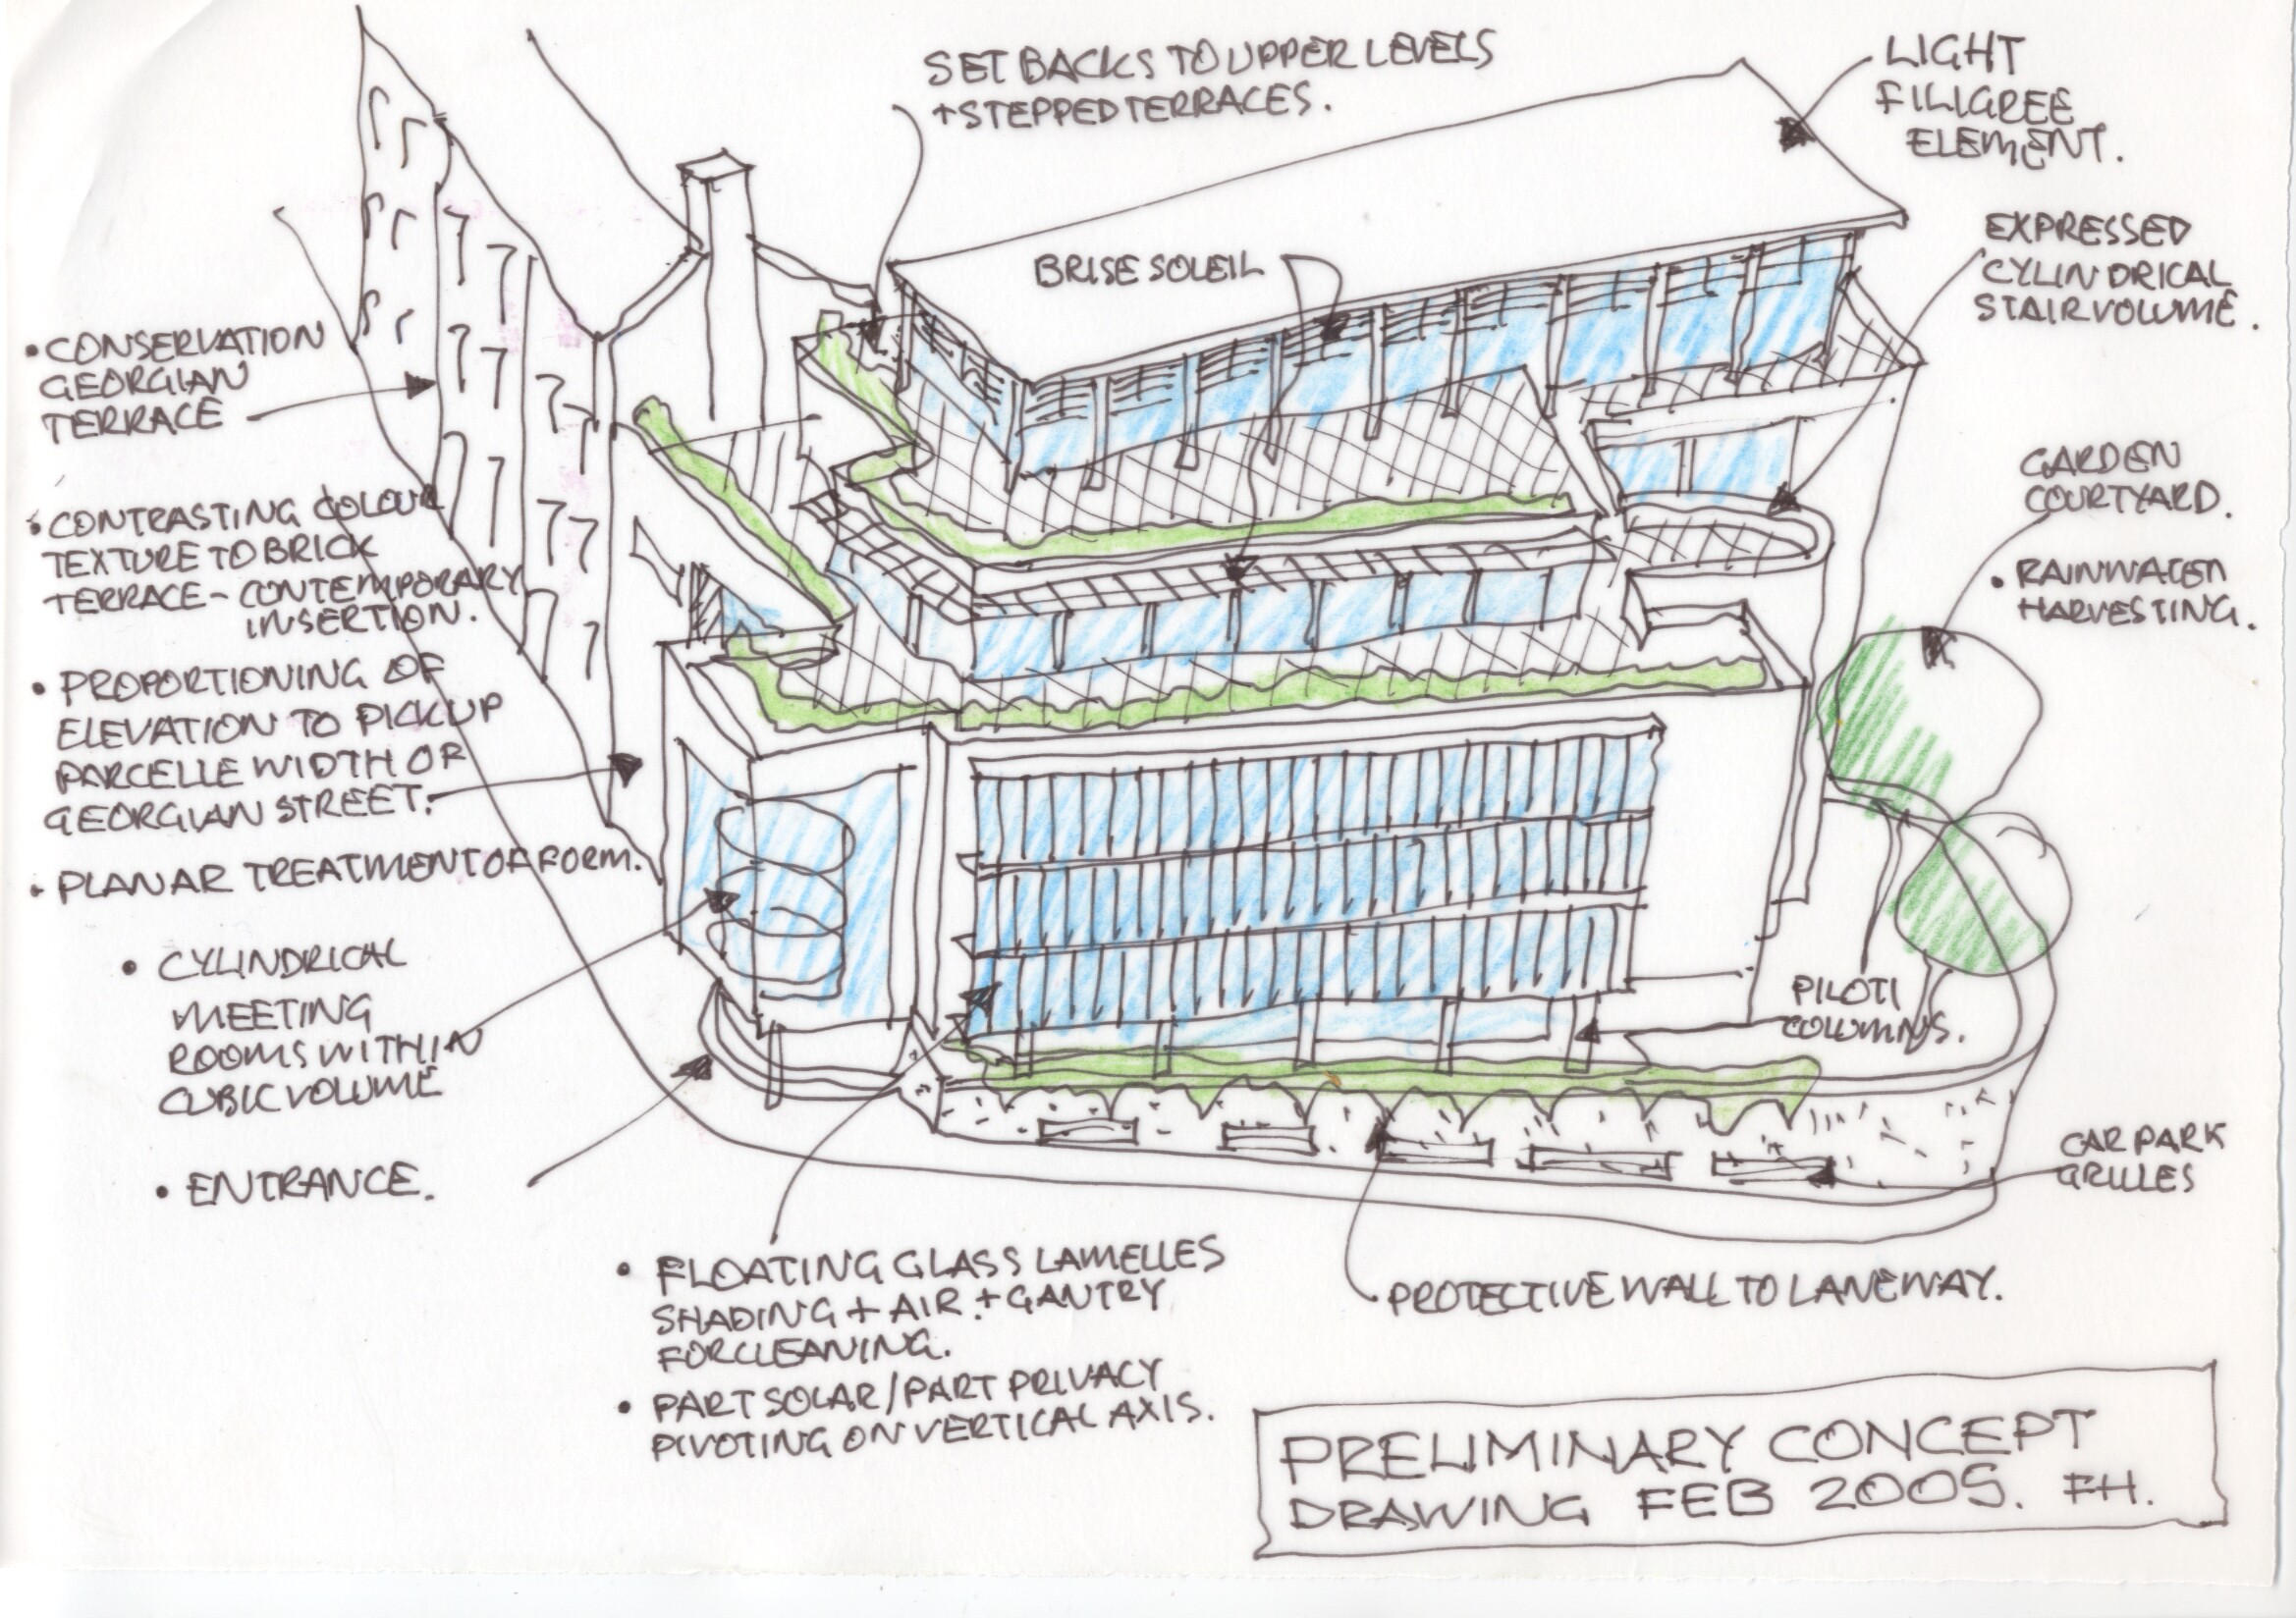 SET BACKS TO UPPER LEVELS
+ STEPPED TERRACES.
LIGHT
FILIGREE
ELEMENT.
BRISE SOLEIL
EXPRESSED
CYLINDRICAL
STAIR VOLUME.
GARDEN
COURTYARD.
• RAINWATER
HARVESTING.
• CONSERVATION
GEORGIAN
TERRACE
• CONTRASTING COLOUR
TEXTURE TO BRICK
TERRACE - CONTEMPORARY
INSERTION.
• PROPORTIONING OF
ELEVATION TO PICK UP
PARCELLE WIDTH OF
GEORGIAN STREET.
• PLANAR TREATMENT OF FORM.
• CYLINDRICAL
MEETING
ROOMS WITHIN
CUBIC VOLUME
• ENTRANCE.
PILOTI
COLUMNS.
CAR PARK
GRILLES
• FLOATING GLASS LAMELLES
SHADING + AIR. + GANTRY
FOR CLEANING.
• PART SOLAR / PART PRIVACY
PIVOTING ON VERTICAL AXIS.
PROTECTIVE WALL TO LANEWAY.
PRELIMINARY CONCEPT
DRAWING FEB 2005. FH.